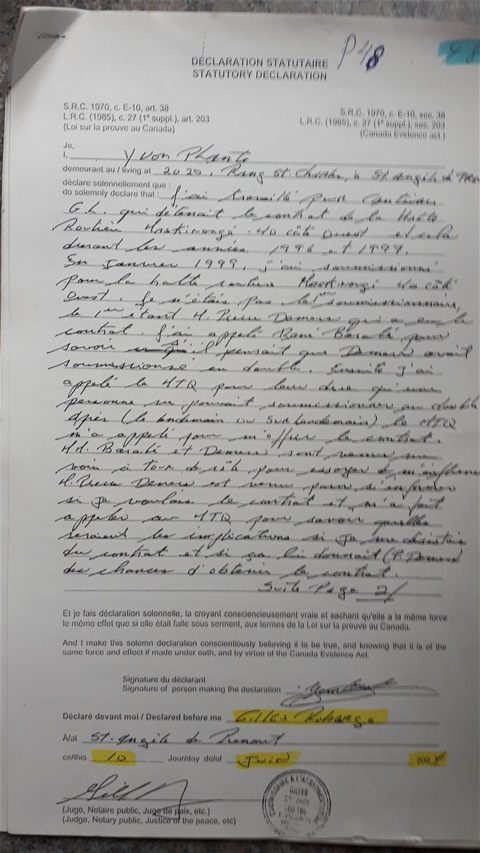 P48
DÉCLARATION STATUTAIRE
STATUTORY DECLARATION
S.R.C. 1970, c. E-10, art. 36
L.R.C. (1985), c. 27 (1e suppl.), art. 203
(Loi sur la preuve au Canada)
S.R.C. 1970, c. E-10, sec. 36
L.R.C. (1985), c. 27 (1e suppl.), sec. 203
(Canada Evidence act.)
Je,
I, Yvon Plante
demeurant au / living at 2025, Rang St. à St. Angèle de
déclare solennellement que :
do solemnly declare that : J'ai travaillé pour
G.L. qui détenait le contrat de la Halte
Routière 40 côté Ouest et cela
durant les années 1996 et 1997.
En Janvier 1999, j'ai soumissionné
pour la halte routière 40 côté
Ouest. Je n'étais pas le 1er soumissionnaire,
le 1er étant M. Pierre Demers qui a eu le
contrat. J'ai appelé René Barabé pour
savoir qu'il pensait que Demers avait
soumissionné en double. Ensuite j'ai
appelé le MTQ pour leur dire qu'une
personne ne pouvait soumissionner en double
Après (le lendemain ou surlendemain) le MTQ
m'a appelé pour m'offrir le contrat.
MM. Barabé et Demers sont venus me
voir à tour de rôle pour essayer de
M. Pierre Demers est venu pour s'informer
si je voulais le contrat et m'a fait
appeler au MTQ pour savoir quelles
seraient les implications si je me désistais
du contrat et si ça lui donnait (P. Demers)
des chances d'obtenir le contrat.
Suite Page 2/
Et je fais déclaration solennelle, la croyant consciencieusement vraie et sachant qu'elle a la même force
le même effet que si elle était faite sous serment, aux termes de la Loi sur la preuve au Canada.
And I make this solemn declaration conscientiously believing it to be true, and knowing that it is of the
same force and effect if made under oath, and by virtue of the Canada Evidence Act.
Signature du déclarant
Signature of person making the declaration
Déclaré devant moi / Declared before me Gilles
À/at St-Angèle de Prémont
ce/this 10 Jour/day de/of Juin 200
(Juge, Notaire public, Juge de paix, etc.)
(Judge, Notary public, Justice of the peace, etc)